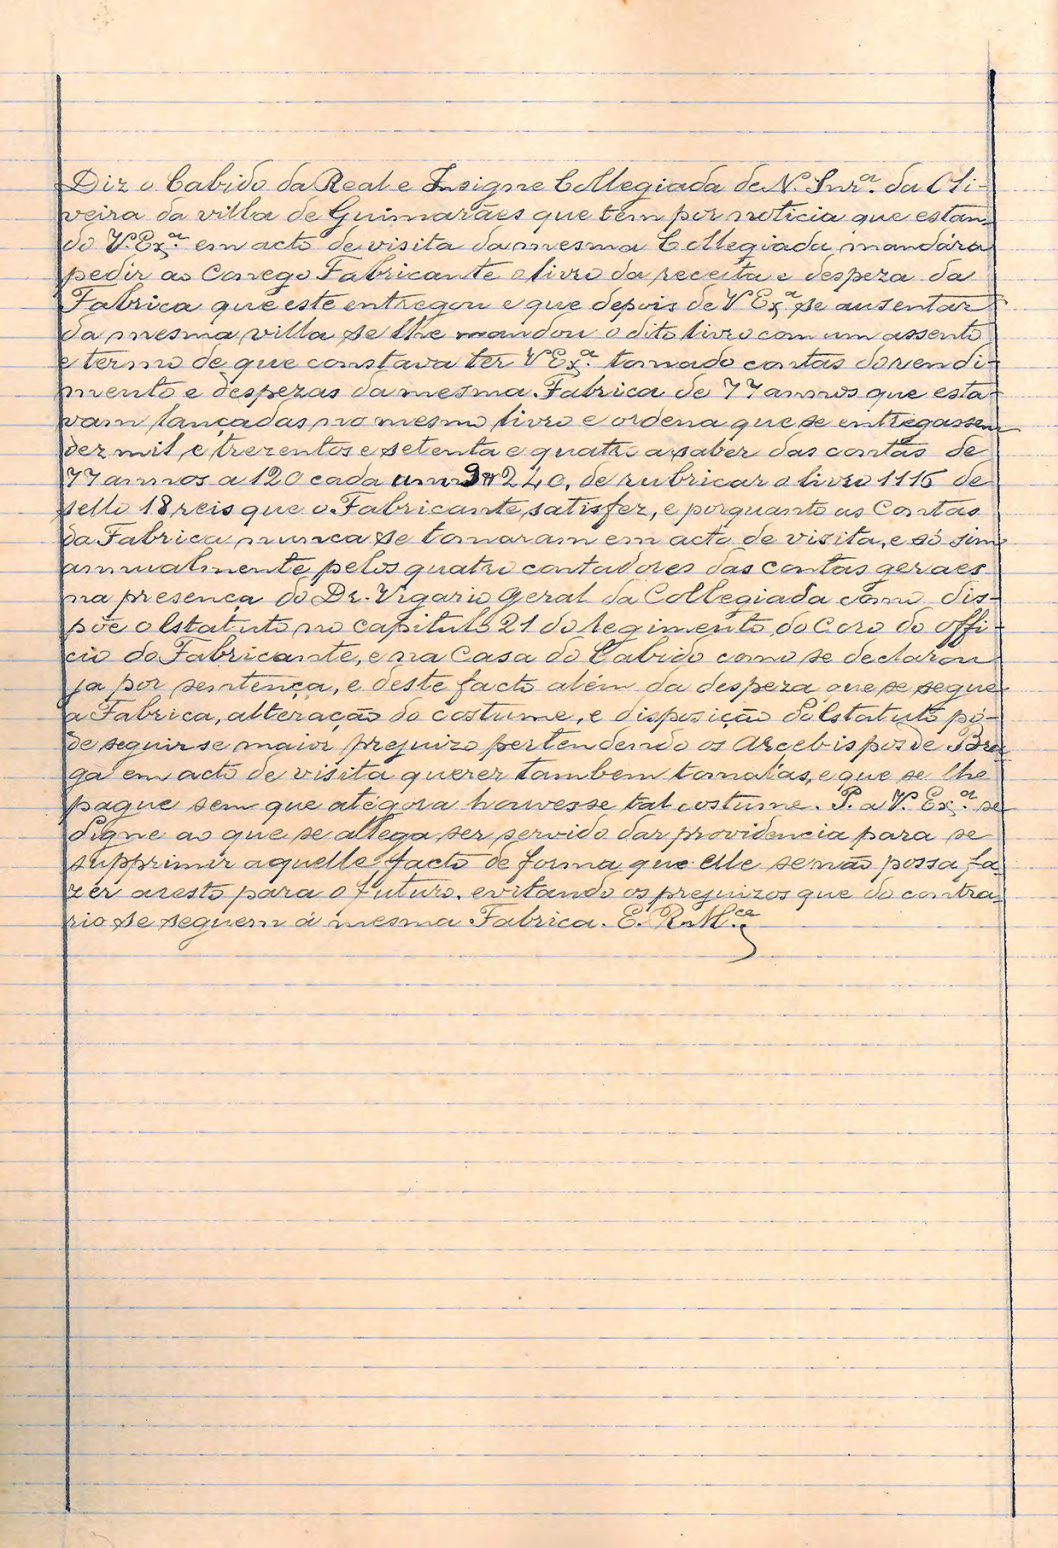 Diz o Cabido da Real e Insigne Collegiada de N. Snrª. da Oli-
veira da villa de Guimarães que tem por noticia que estan-
do V. Exª. em acto de visita da mesma Collegiada, mandára
pedir ao Conego Fabricante o livro da receita e despeza da
Fabrica que este entregou e que depois de V Exª. se ausentar
da mesma villa se lhe mandou o dito livro com um assento
e termo de que constava ter V Exª. tomado contas do rendi-
mento e despezas da mesma Fabrica de 77 annos que esta-
vam lançadas no mesmo livro e ordena que se entregassem
dez mil, e trezentos e setenta e quatro a saber das contas de
77 annos a 120 cada um 9$240, de rubricar o livro 1116 de
sello 18 reis que o Fabricante satisfez, e porquanto as Contas
da Fabrica nunca se tomaram em acto de visita, e só sim
annualmente pelos quatro contadores das contas geraes
na presença do Dr. Vigario Geral da Collegiada como dis-
põe o Estatuto no capitulo 21 do regimento do Coro do offi-
cio do Fabricante, e na Casa do Cabido como se declarou
ja por sentença, e deste facto além da despeza que se segue
a Fabrica, alteração do costume, e disposição do Estatuto pó-
de seguir-se maior prejuizo pertendendo os Arcebispos de Bra
ga em acto de visita querer tambem tomal'as, e que se lhe
pague sem que atégora houvesse tal costume. P. a V. Exª. se
digne ao que se allega ser servido dar providencia para se
supprimir aquelle facto de forma que elle se não possa fa-
zer aresto para o futuro, evitando os prejuizos que do contra-
rio se seguem á mesma Fabrica. E. R. M.ce